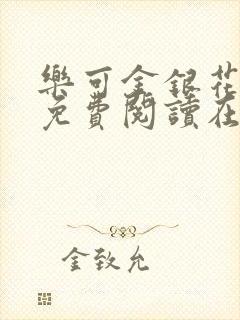 樂可金銀花
免費閱讀在
金致允